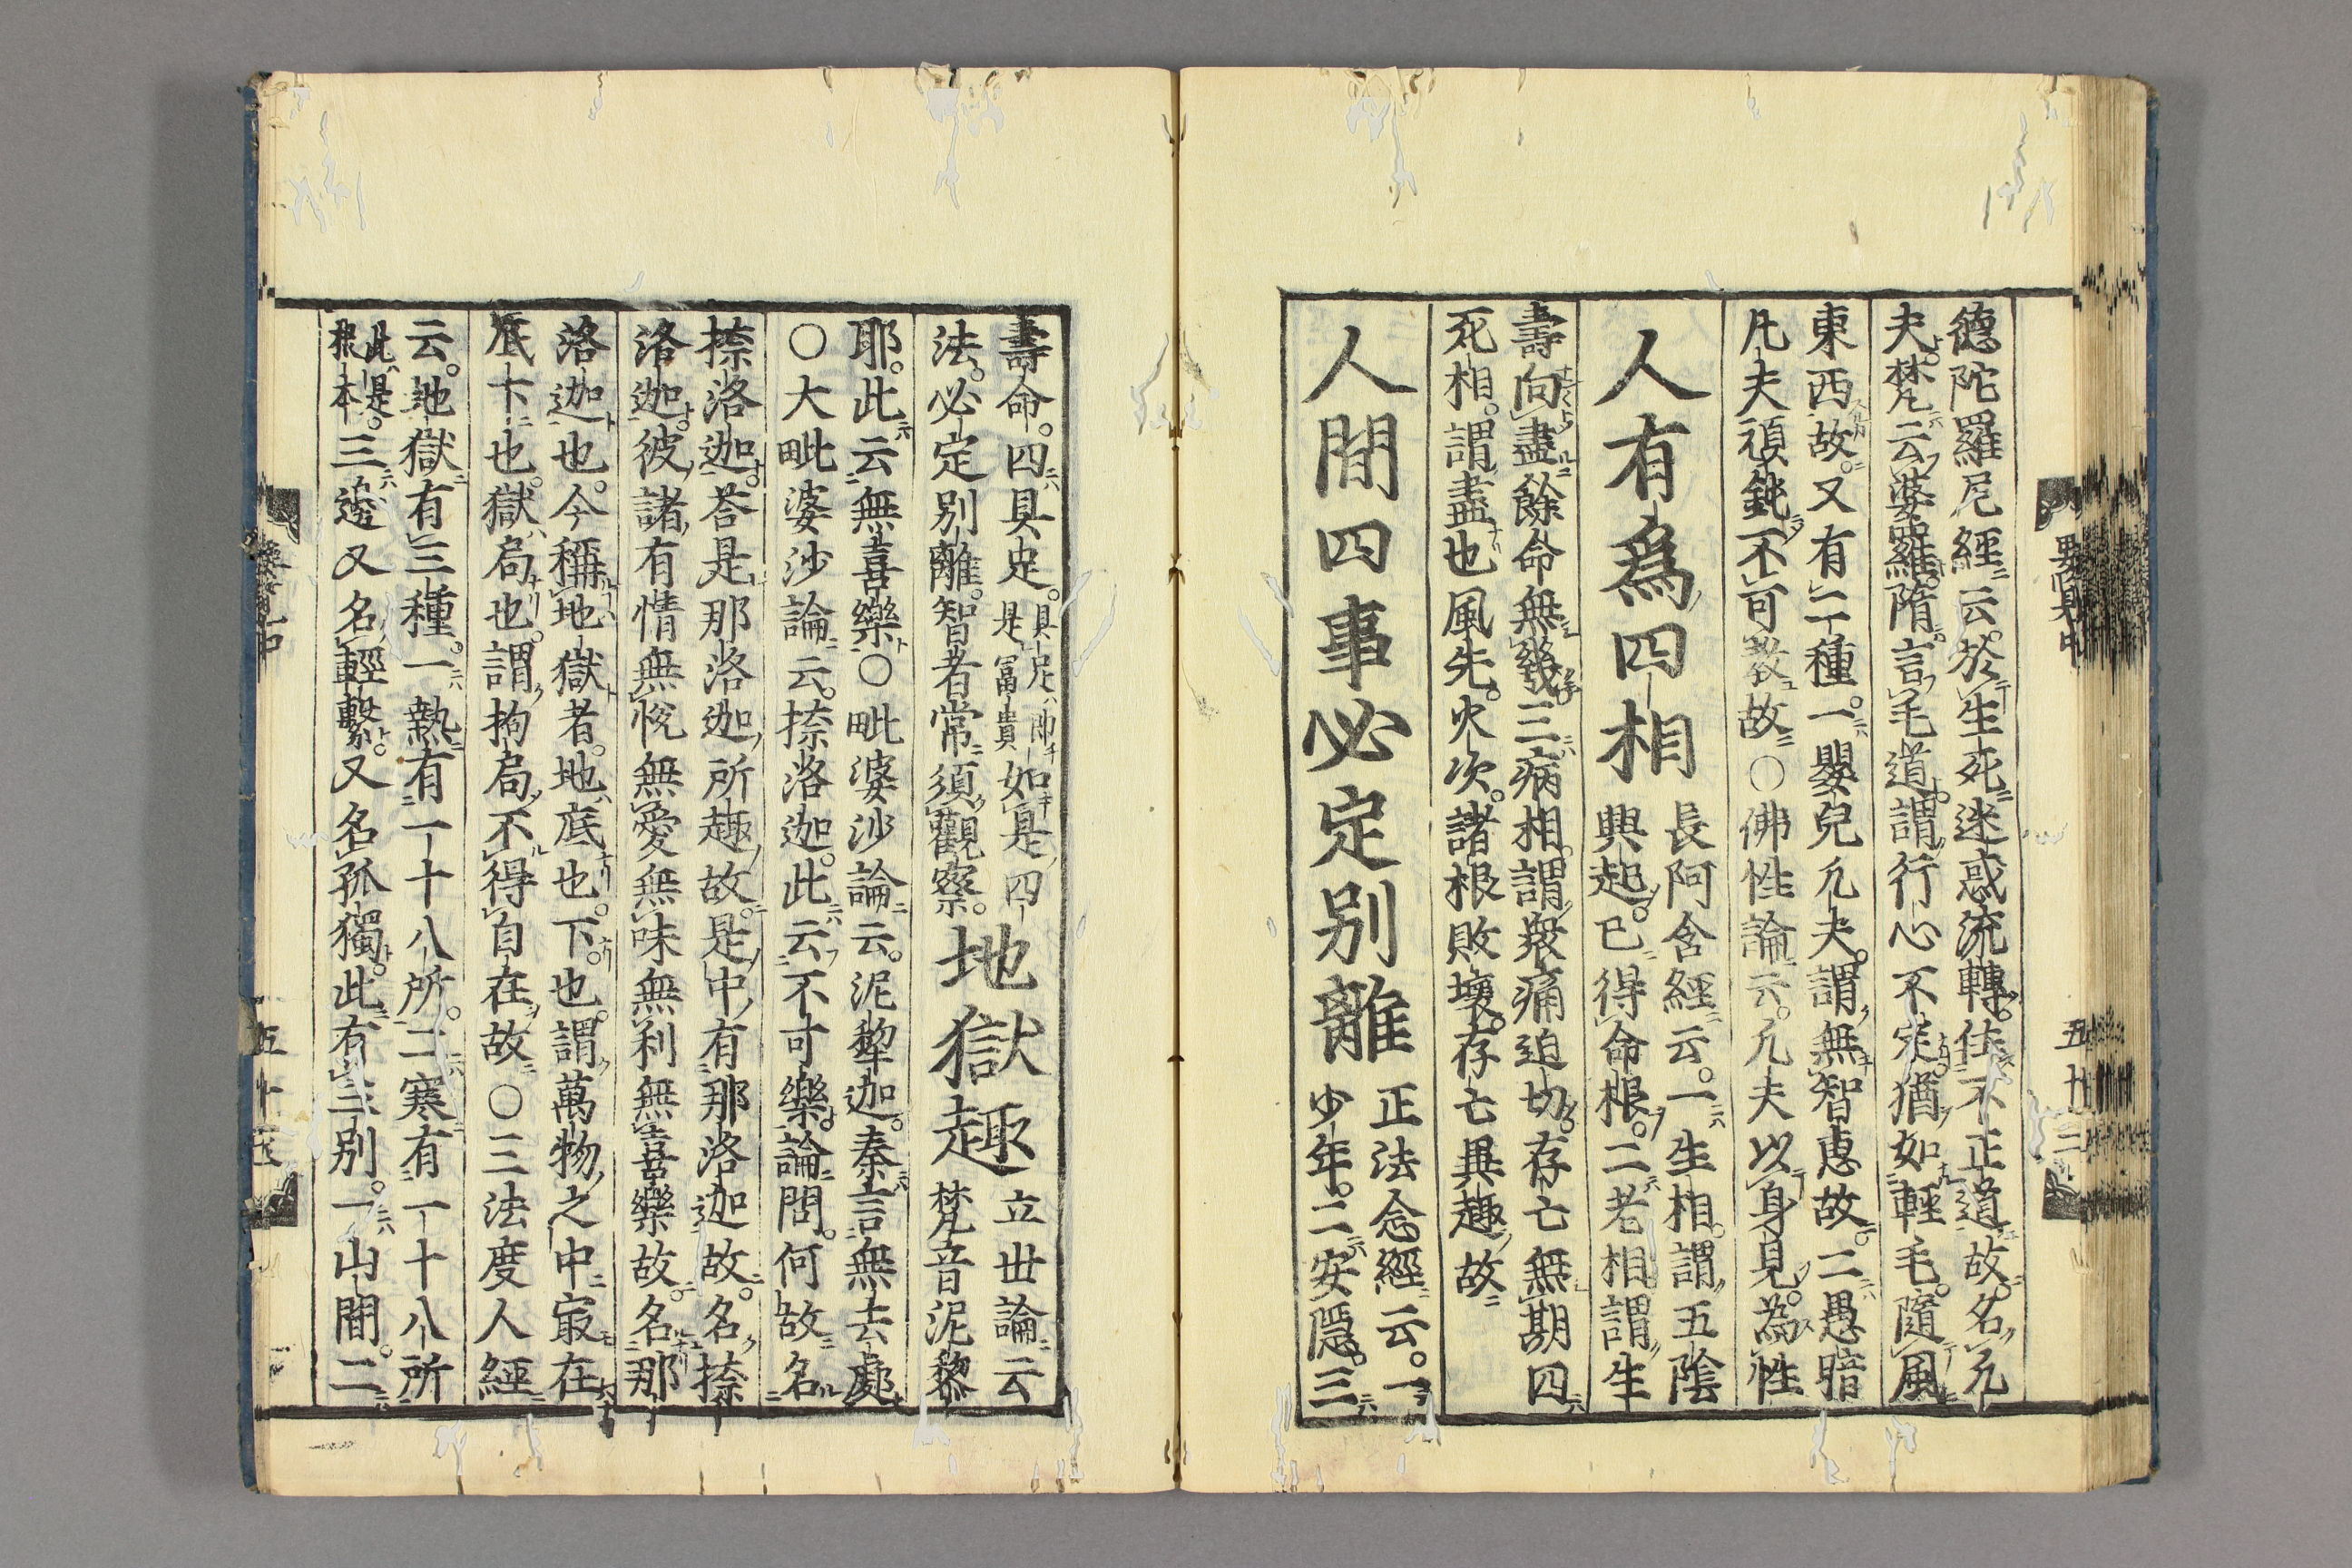 德陀羅尼經云於生死迷惑流轉住不正道故名凡
夫梵云婆羅隋言毛道謂行心不定猶如輕毛隨風
東西故又有二種一嬰兒凡夫謂無智惠故二愚暗
凡夫頑鈍不可教故○佛性論云凡夫以身見為性
人有爲四相
長阿含經云一生相謂五陰
興起已得命根二老相謂生
壽向盡餘命無幾三病相謂衆痛迫切存亡無期四
死相謂盡也風先火次諸根敗壞存亡異趣故
人間四事必定別離
正法念經云一
少年二安隱三
壽命四具足
具足即
是冨貴
如是四
法必定別離智者常須觀察
地獄趣
立世論云
梵音泥黎
耶此云無喜樂○毗婆沙論云泥犂迦秦言無去處
○大毗婆沙論云捺洛迦此云不可樂論問何故名
捺洛迦荅是那洛迦所趣故是中有那洛迦故名捺
洛迦彼諸有情無悅無愛無味無利無喜樂故名那
洛迦也今稱地獄者地底也下也謂萬物之中㝡在
底下也獄局也謂拘局不得自在故○三法度人經
云地獄有三種一熱有一十八所二寒有一十八所
此是
根本
三邊又名輕繫又名孤獨此有三別一山間二
要覽中
五十二